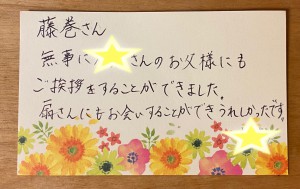 藤巻さん
無事に さんのお父様にも
ご挨拶をすることができました。
扇さんにもお会いすることができうれしかったです。